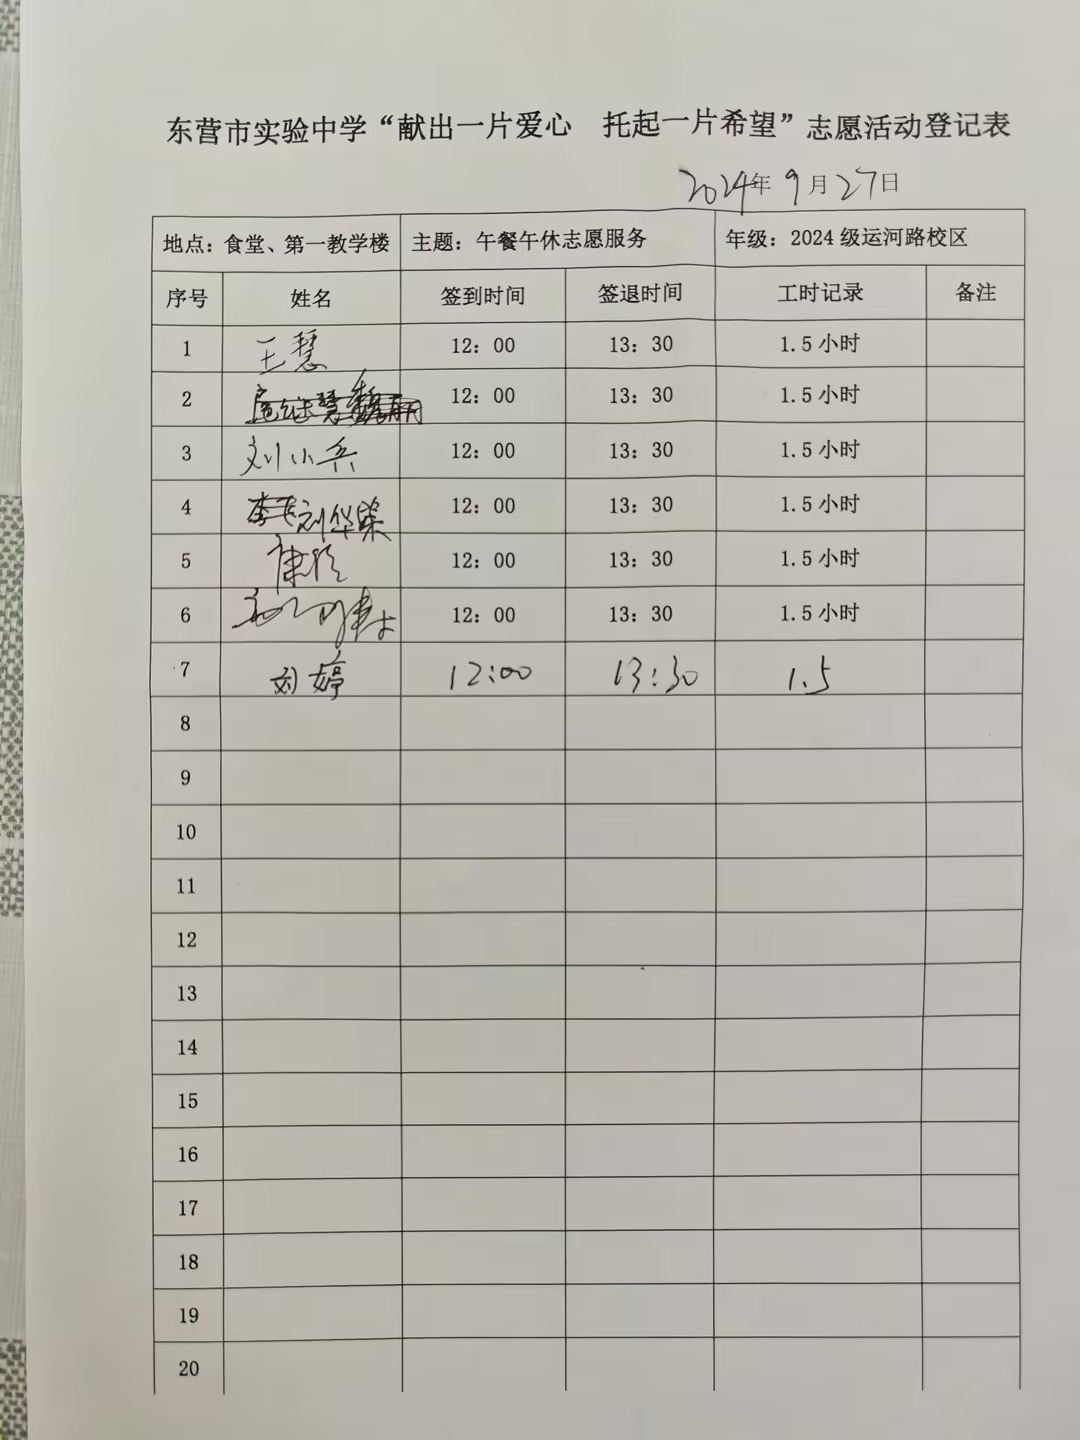 东营市实验中学“献出一片爱心　托起一片希望”志愿活动登记表
2024年 9月27日
地点：食堂、第一教学楼 主题：午餐午休志愿服务 年级：2024级运河路校区
序号 姓名 签到时间 签退时间 工时记录 备注
1 王慧 12：00 13：30 1.5小时
2 12：00 13：30 1.5小时
3 刘小兵 12：00 13：30 1.5小时
4 刘华荣 12：00 13：30 1.5小时
5 12：00 13：30 1.5小时
6 12：00 13：30 1.5小时
7 刘婷 12:00 13:30 1.5
8
9
10
11
12
13
14
15
16
17
18
19
20